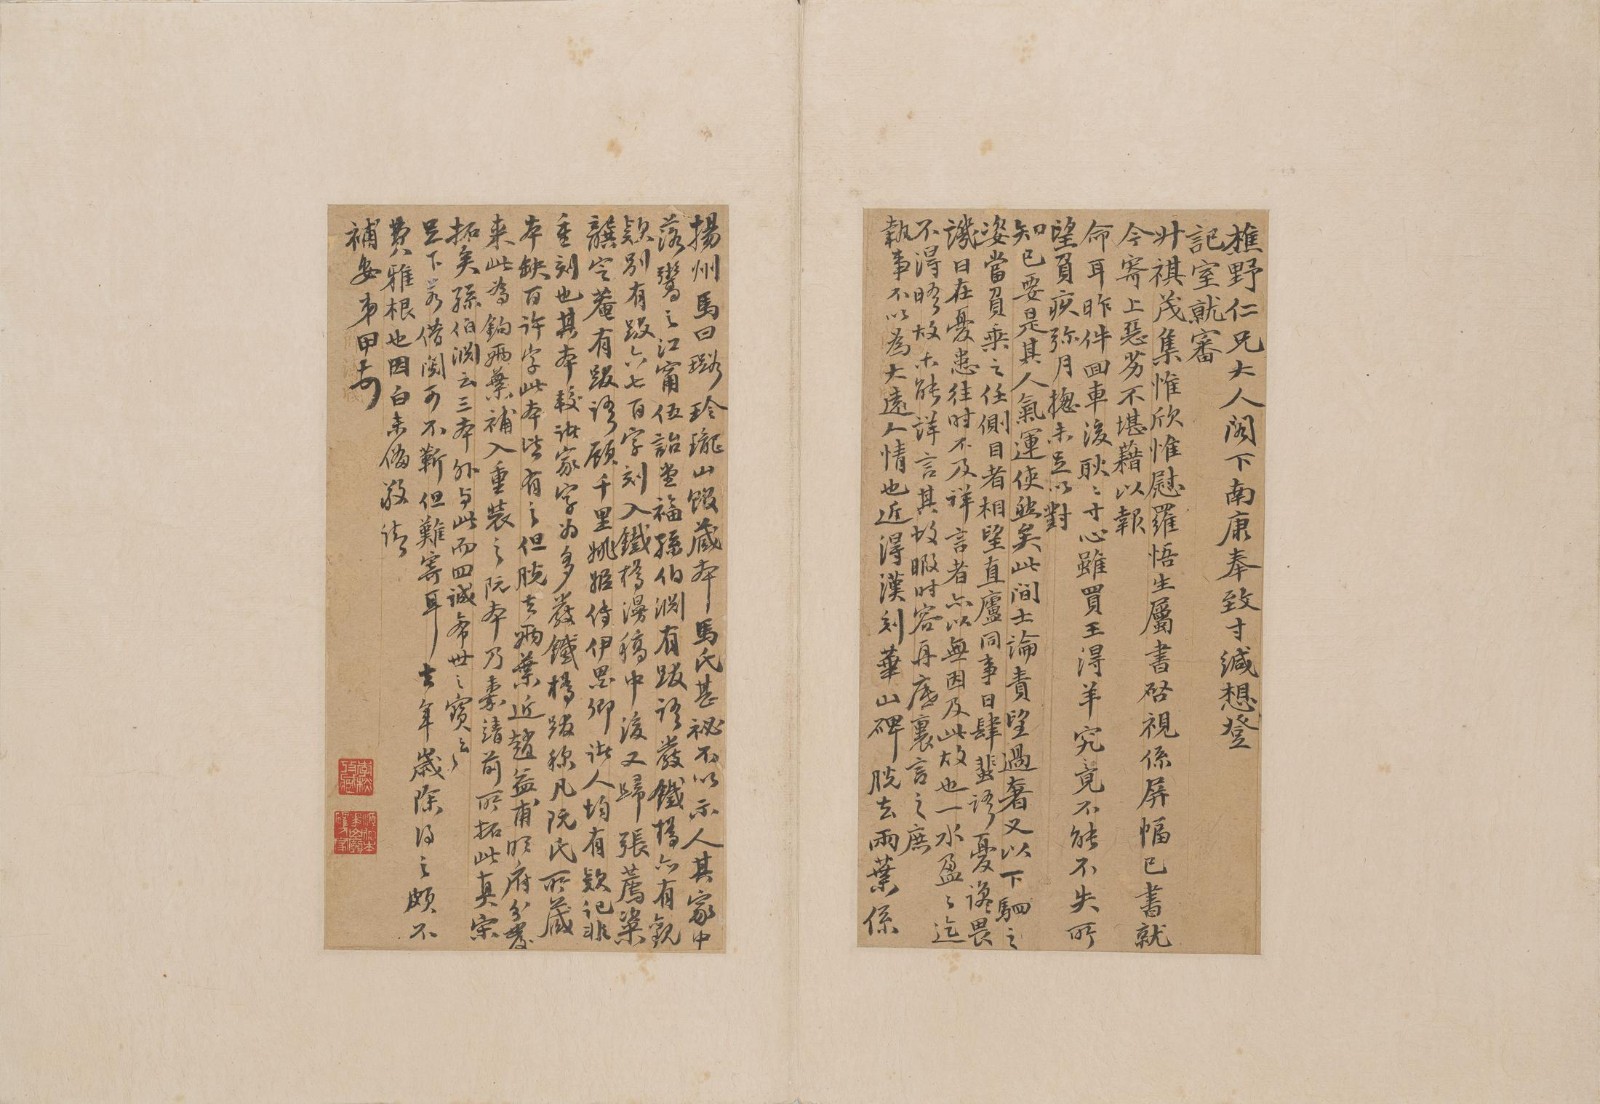 樵野仁兄大人閣下南康奉致寸緘想登
記室就審
升祺茂集惟欣惟慰羅悟生屬書啓視係屏幅已書就
今寄上惡劣不堪藉以報
命耳昨件回車後耿〻寸心雖買王得羊究竟不能不失所
望負疚彌月摠未足以對
知己要是其人氣運使然矣此間士論責望過奢又以下駟之
姿當負乘之任側目者相望直廬同事日肆蜚語憂讒畏
譏日在憂患往時不及詳言者亦以無因及此故也一水盈〻迄
不得晤故未能詳言其故暇时容再底裏言之庶
執事不以為大遠人情也近得漢刻華山碑脱去兩葉係
揚州馬曰璐玲瓏山館藏本馬氏甚祕不以示人其家中
落鬻之江甯伍詒堂福孫伯淵有跋語嚴鐵橋亦有觀
款別有跋六七百字刻入鐵橋漫稿中後又歸張薦粢
龔定菴有跋語顧千里姚姬傳伊墨卿諸人均有款記非
重刻也其本較諸家字為多嚴鐵橋跋稱凡阮氏所藏
本缺百許字此本皆有之但脱去兩葉近趙益甫明府
来此為鉤兩葉補入重裝之阮本乃素靖前所拓此真宋
拓矣孫伯淵云三本外与此而四誠希世之寶云〻
足下若借閱可不靳但難寄耳去年歲除得之頗不
費雅根也因白未備敬請
補安弟